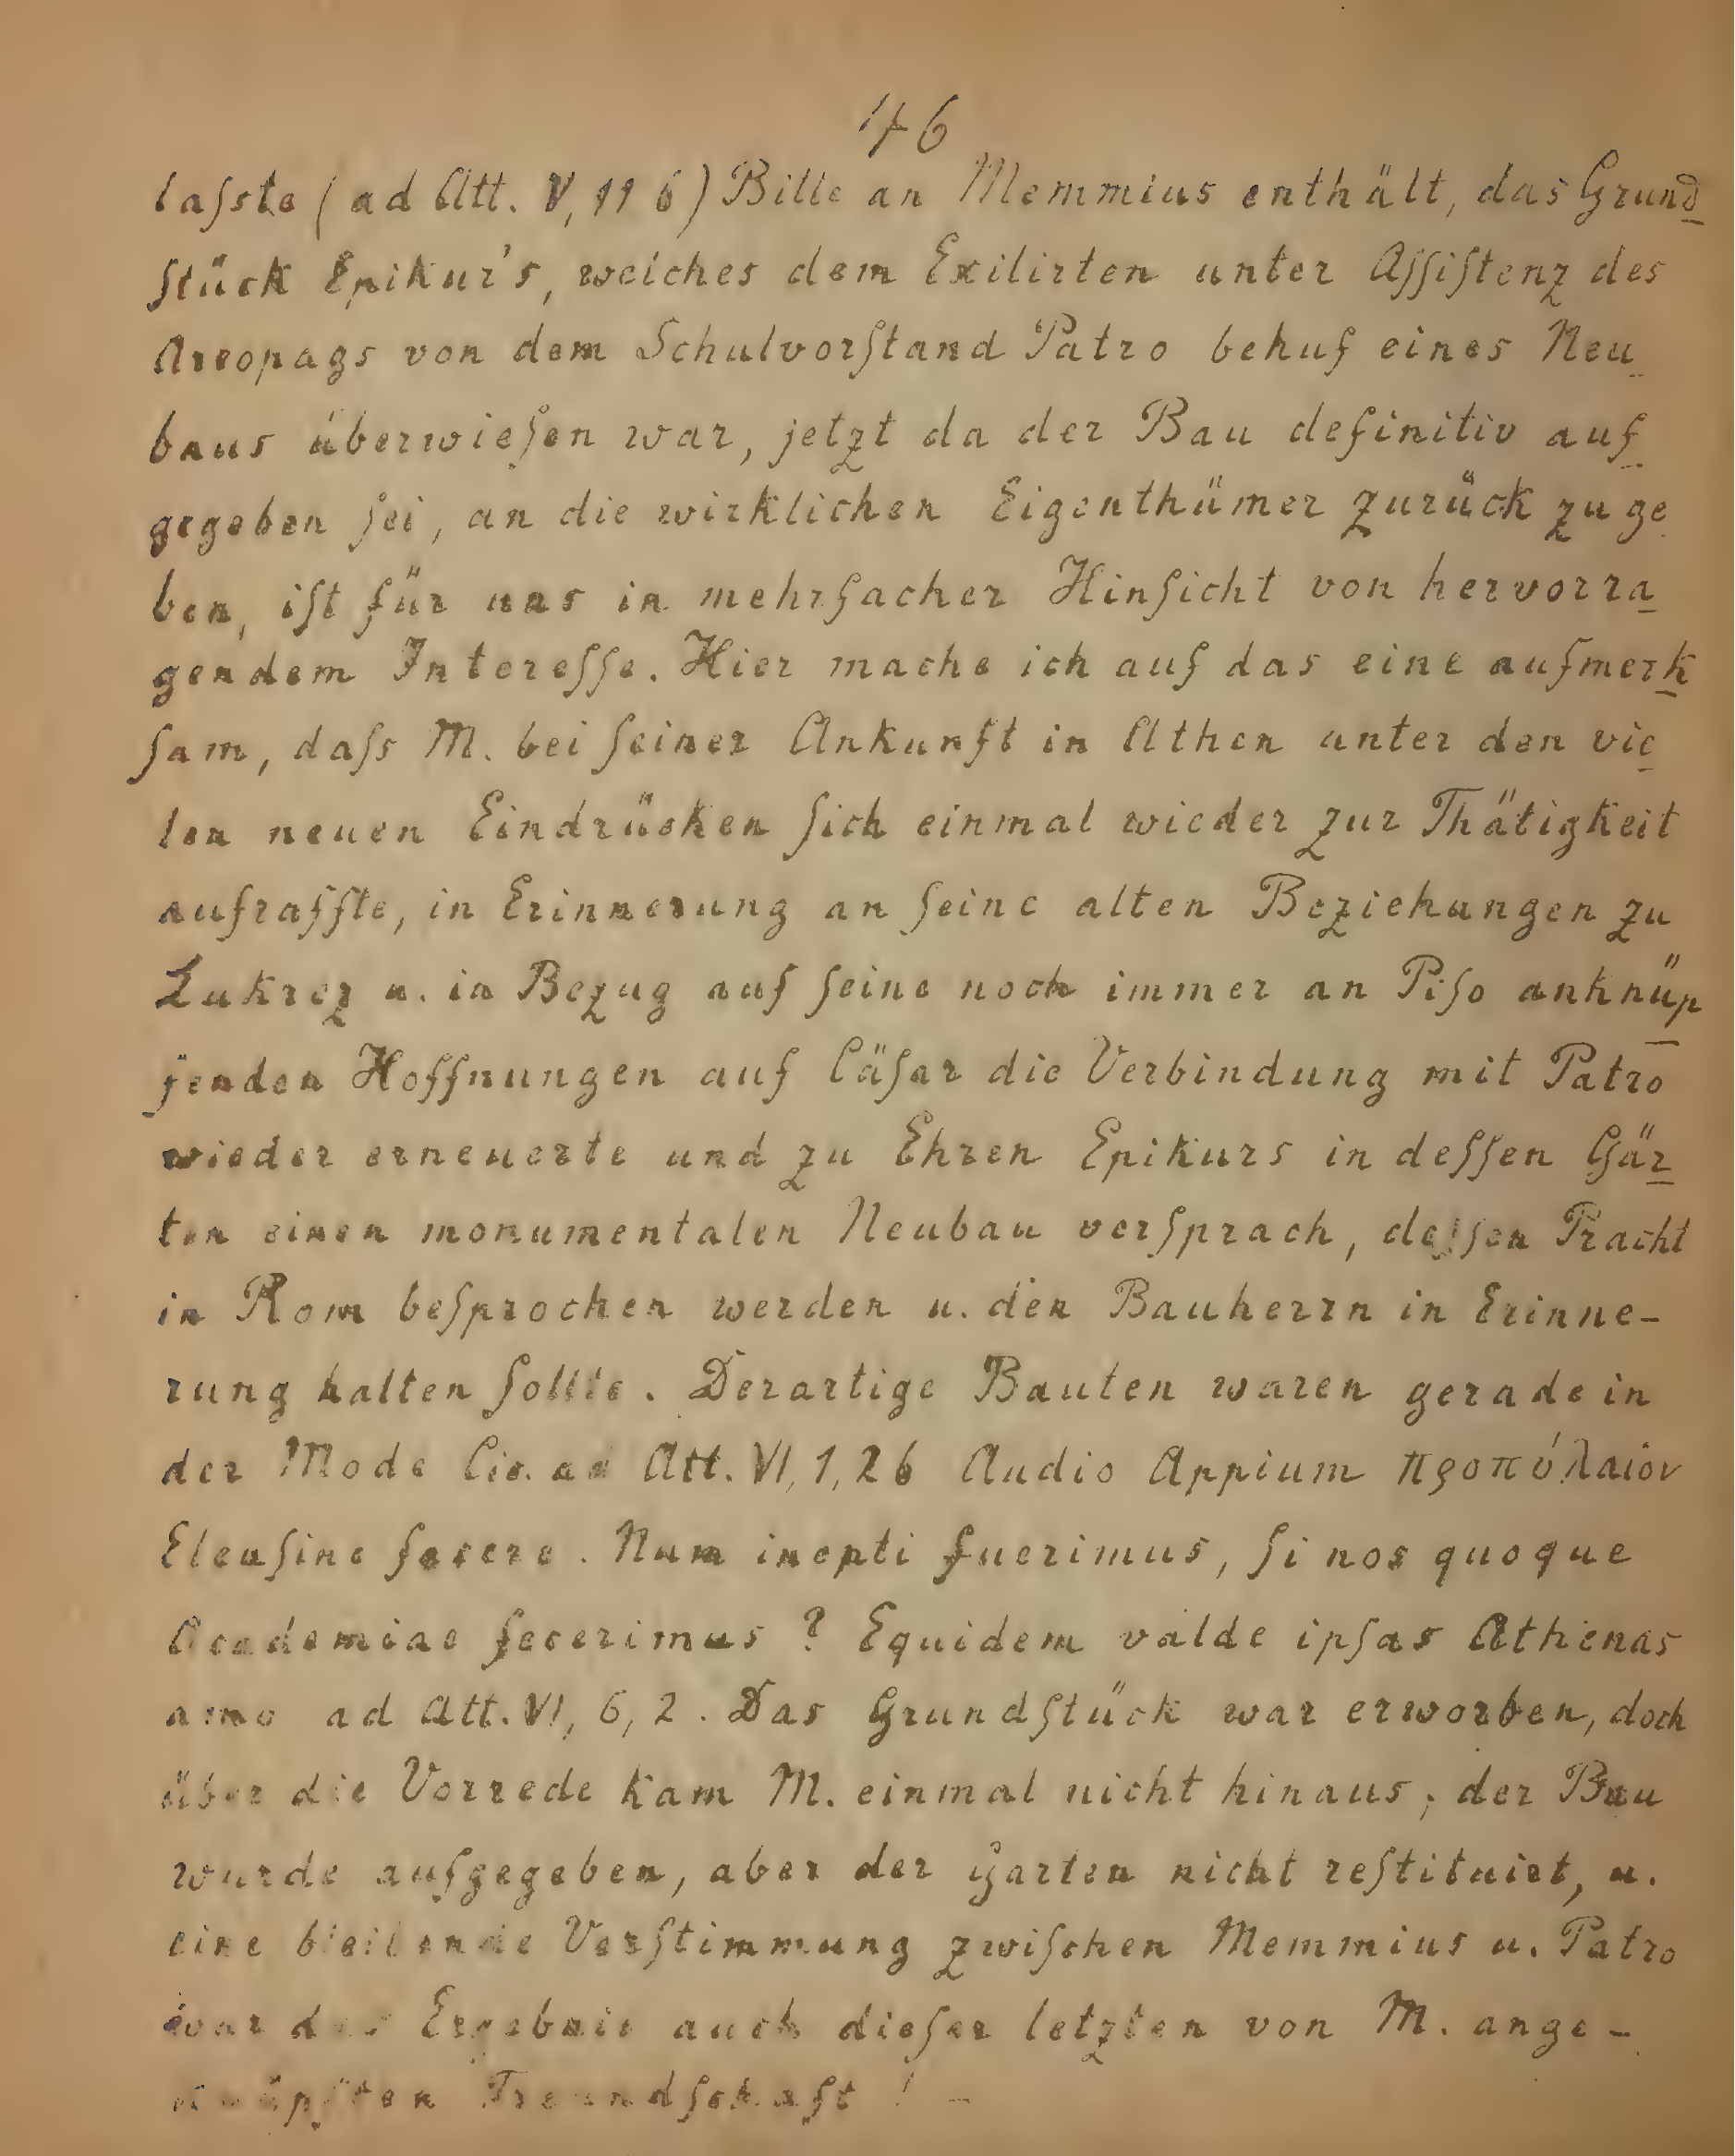 46
laſste (ad Att. V, 11 6) Bille an Memmius enthält, das Grund
ſtück Epikur's, welches dem Exilirten unter Aſſiſtenz des
Areopags von dem Schulvorſtand Patro behuf eines Neu
baus überwieſen war, jetzt da der Bau definitiv auf
gegeben ſei, an die wirklichen Eigenthümer zurück zu ge
ben, iſt für uns in mehrfacher Hinſicht von hervorra
gendem Intereſſe. Hier mache ich auf das eine aufmerk
ſam, daſs M. bei ſeiner Ankunft in Athen unter den vie
len neuen Eindrücken ſich einmal wieder zur Thätigkeit
aufraffte, in Erinnerung an ſeine alten Beziehungen zu
Lukrez u. in Bezug auf ſeine noch immer an Piſo anknüp
fenden Hoffnungen auf Cäſar die Verbindung mit Patro
wieder erneuerte und zu Ehren Epikurs in deſſen Gär
ten einen monumentalen Neubau verſprach, deſſen Pracht
in Rom beſprochen werden u. den Bauherrn in Erinne-
rung halten ſollte. Derartige Bauten waren gerade in
der Mode Cic. ad Att. VI, 1, 26 Audio Appium προπύλαιον
Eleuſine facere. Num inepti fuerimus, ſi nos quoque
Academiae fecerimus? Equidem valde ipſas Athenas
amo ad Att. VI, 6, 2. Das Grundſtück war erworben, doch
über die Vorrede kam M. einmal nicht hinaus; der Bau
wurde aufgegeben, aber der Garten nicht reſtituirt, u.
eine bleibende Verſtimmung zwiſchen Memmius u. Patro
war das Ergebnis auch dieſer letzten von M. ange-
knüpften Freundſchaft! -